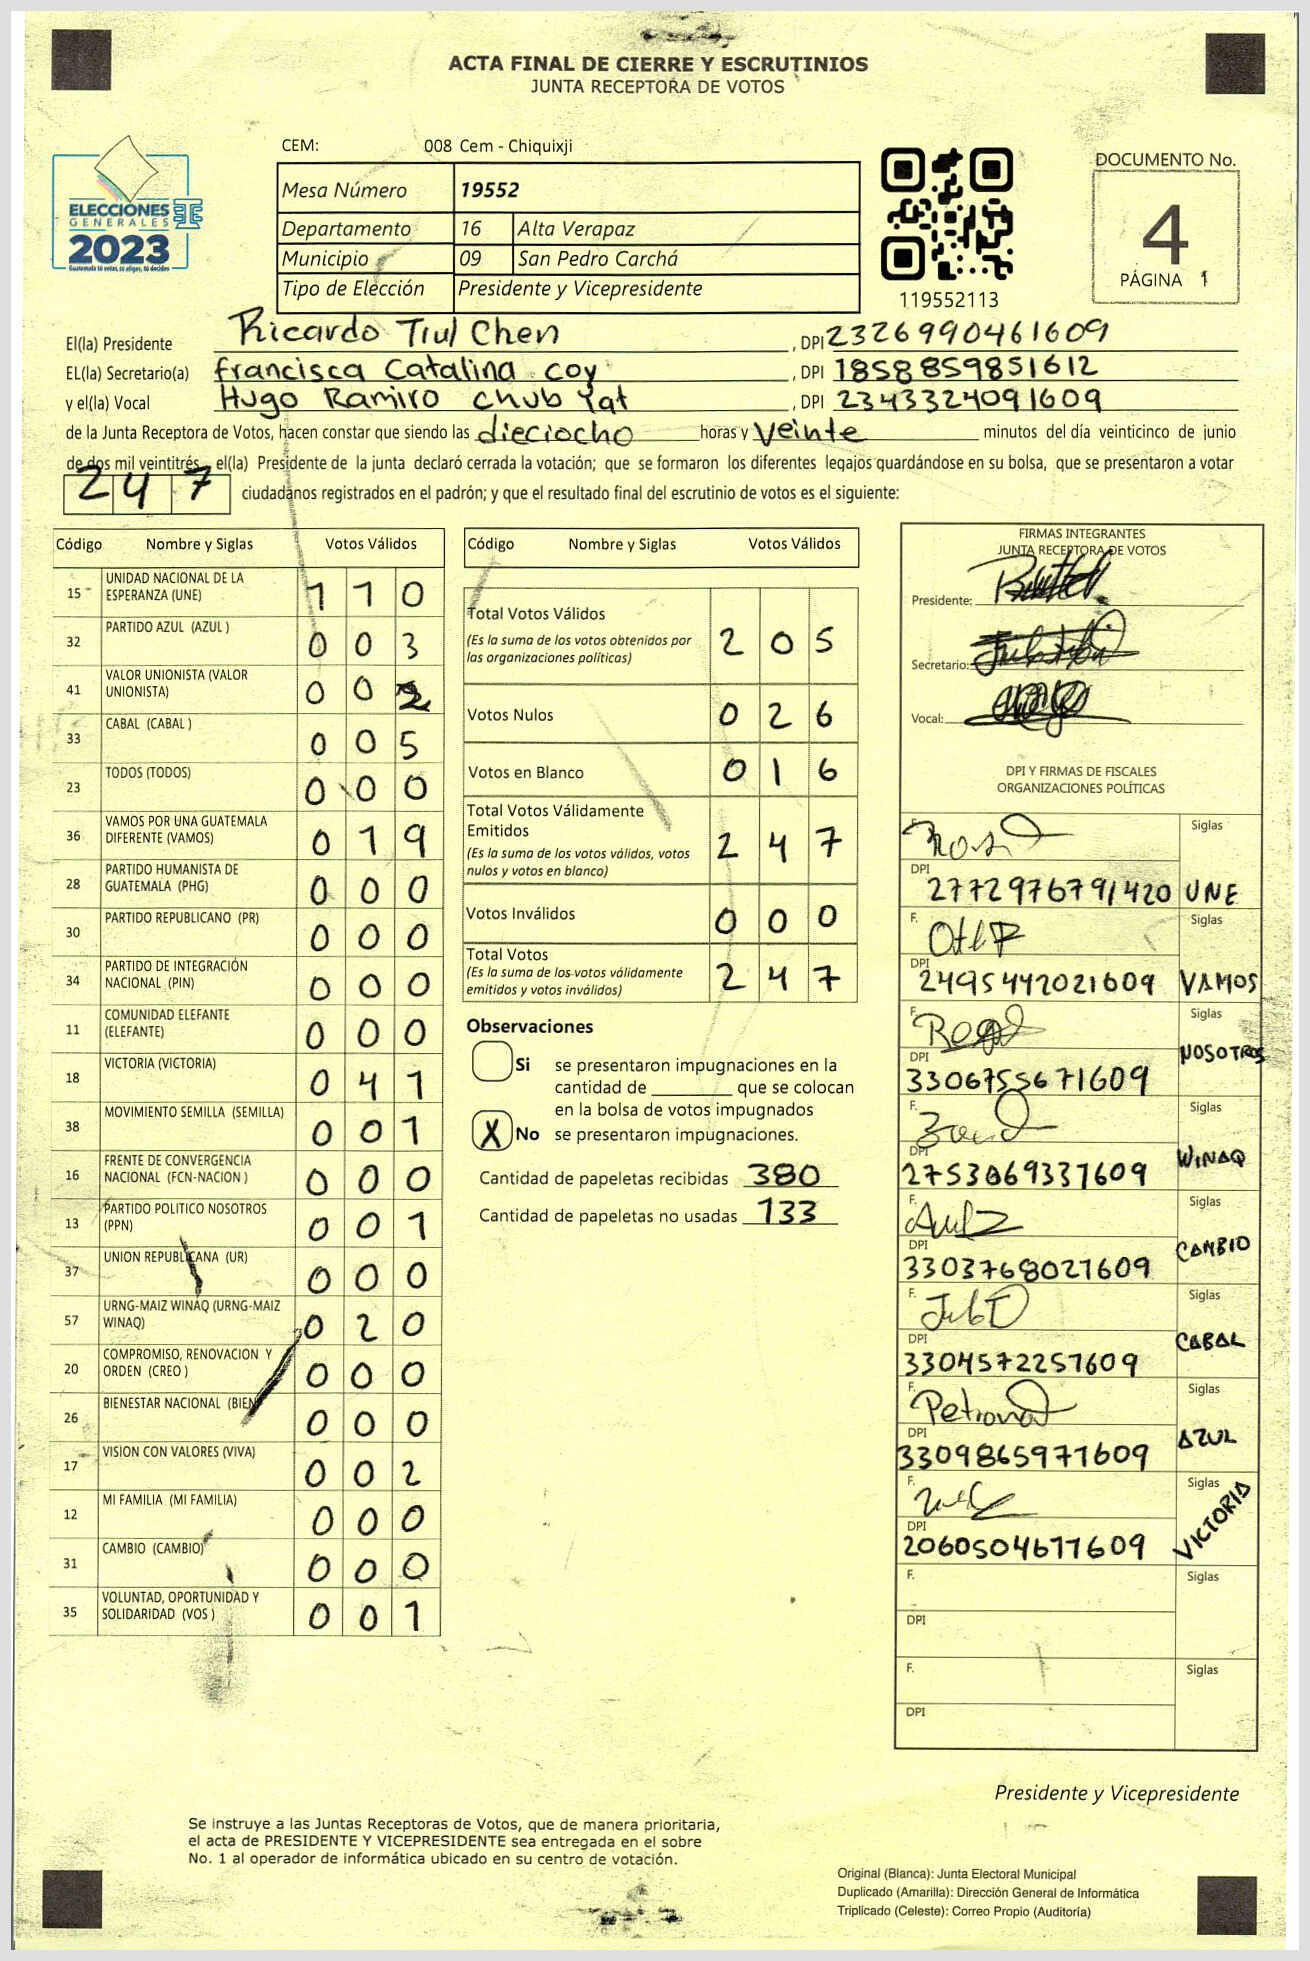 ACTA FINAL DE CIERRE Y ESCRUTINIOS
JUNTA RECEPTORA DE VOTOS
ELECCIONES
GENERALES
2023
Guatemala tú votas, tú eliges, tú decides
CEM: 008 Cem - Chiquixji
Mesa Número 19552
Departamento 16 Alta Verapaz
Municipio 09 San Pedro Carchá
Tipo de Elección Presidente y Vicepresidente
119552113
DOCUMENTO No.
4
PÁGINA 1
El(la) Presidente Ricardo Tiul Chen , DPI 2326990461609
EL(la) Secretario(a) francisca Catalina coy , DPI 1858859851612
y el(la) Vocal Hugo Ramiro chub Yat , DPI 2343324091609
de la Junta Receptora de Votos, hacen constar que siendo las dieciocho horas y veinte minutos del día veinticinco de junio
de dos mil veintitrés el(la) Presidente de la junta declaró cerrada la votación; que se formaron los diferentes legajos guardándose en su bolsa, que se presentaron a votar
247 ciudadanos registrados en el padrón; y que el resultado final del escrutinio de votos es el siguiente:
Código Nombre y Siglas Votos Válidos
15 UNIDAD NACIONAL DE LA ESPERANZA (UNE) 1 1 0
32 PARTIDO AZUL (AZUL ) 0 0 3
41 VALOR UNIONISTA (VALOR UNIONISTA) 0 0 2
33 CABAL (CABAL ) 0 0 5
23 TODOS (TODOS) 0 0 0
36 VAMOS POR UNA GUATEMALA DIFERENTE (VAMOS) 0 1 9
28 PARTIDO HUMANISTA DE GUATEMALA (PHG) 0 0 0
30 PARTIDO REPUBLICANO (PR) 0 0 0
34 PARTIDO DE INTEGRACIÓN NACIONAL (PIN) 0 0 0
11 COMUNIDAD ELEFANTE (ELEFANTE) 0 0 0
18 VICTORIA (VICTORIA) 0 4 1
38 MOVIMIENTO SEMILLA (SEMILLA) 0 0 1
16 FRENTE DE CONVERGENCIA NACIONAL (FCN-NACION ) 0 0 0
13 PARTIDO POLITICO NOSOTROS (PPN) 0 0 1
37 UNION REPUBLICANA (UR) 0 0 0
57 URNG-MAIZ WINAQ (URNG-MAIZ WINAQ) 0 2 0
20 COMPROMISO, RENOVACION Y ORDEN (CREO ) 0 0 0
26 BIENESTAR NACIONAL (BIEN) 0 0 0
17 VISION CON VALORES (VIVA) 0 0 2
12 MI FAMILIA (MI FAMILIA) 0 0 0
31 CAMBIO (CAMBIO) 0 0 0
35 VOLUNTAD, OPORTUNIDAD Y SOLIDARIDAD (VOS ) 0 0 1
Código Nombre y Siglas Votos Válidos
Total Votos Válidos 2 0 5
(Es la suma de los votos obtenidos por
las organizaciones políticas)
Votos Nulos 0 2 6
Votos en Blanco 0 1 6
Total Votos Válidamente
Emitidos 2 4 7
(Es la suma de los votos válidos, votos
nulos y votos en blanco)
Votos Inválidos 0 0 0
Total Votos 2 4 7
(Es la suma de los votos válidamente
emitidos y votos inválidos)
Observaciones
Si se presentaron impugnaciones en la
cantidad de ________ que se colocan
en la bolsa de votos impugnados
X No se presentaron impugnaciones.
Cantidad de papeletas recibidas 380
Cantidad de papeletas no usadas 133
FIRMAS INTEGRANTES
JUNTA RECEPTORA DE VOTOS
Presidente:
Secretario:
Vocal:
DPI Y FIRMAS DE FISCALES
ORGANIZACIONES POLÍTICAS
F. Siglas
DPI 2772976791420 UNE
F. Siglas
DPI 2495442021609 VAMOS
F. Siglas
DPI 3306755671609 NOSOTROS
F. Siglas
DPI 2753069331609 WINAQ
F. Siglas
DPI 3303768021609 CAMBIO
F. Siglas
DPI 3304572251609 CABAL
F. Petrona Siglas
DPI 3309865971609 AZUL
F. Siglas
DPI 2060504611609 VICTORIA
F. Siglas
DPI
F. Siglas
DPI
Presidente y Vicepresidente
Se instruye a las Juntas Receptoras de Votos, que de manera prioritaria,
el acta de PRESIDENTE Y VICEPRESIDENTE sea entregada en el sobre
No. 1 al operador de informática ubicado en su centro de votación.
Original (Blanca): Junta Electoral Municipal
Duplicado (Amarilla): Dirección General de Informática
Triplicado (Celeste): Correo Propio (Auditoría)